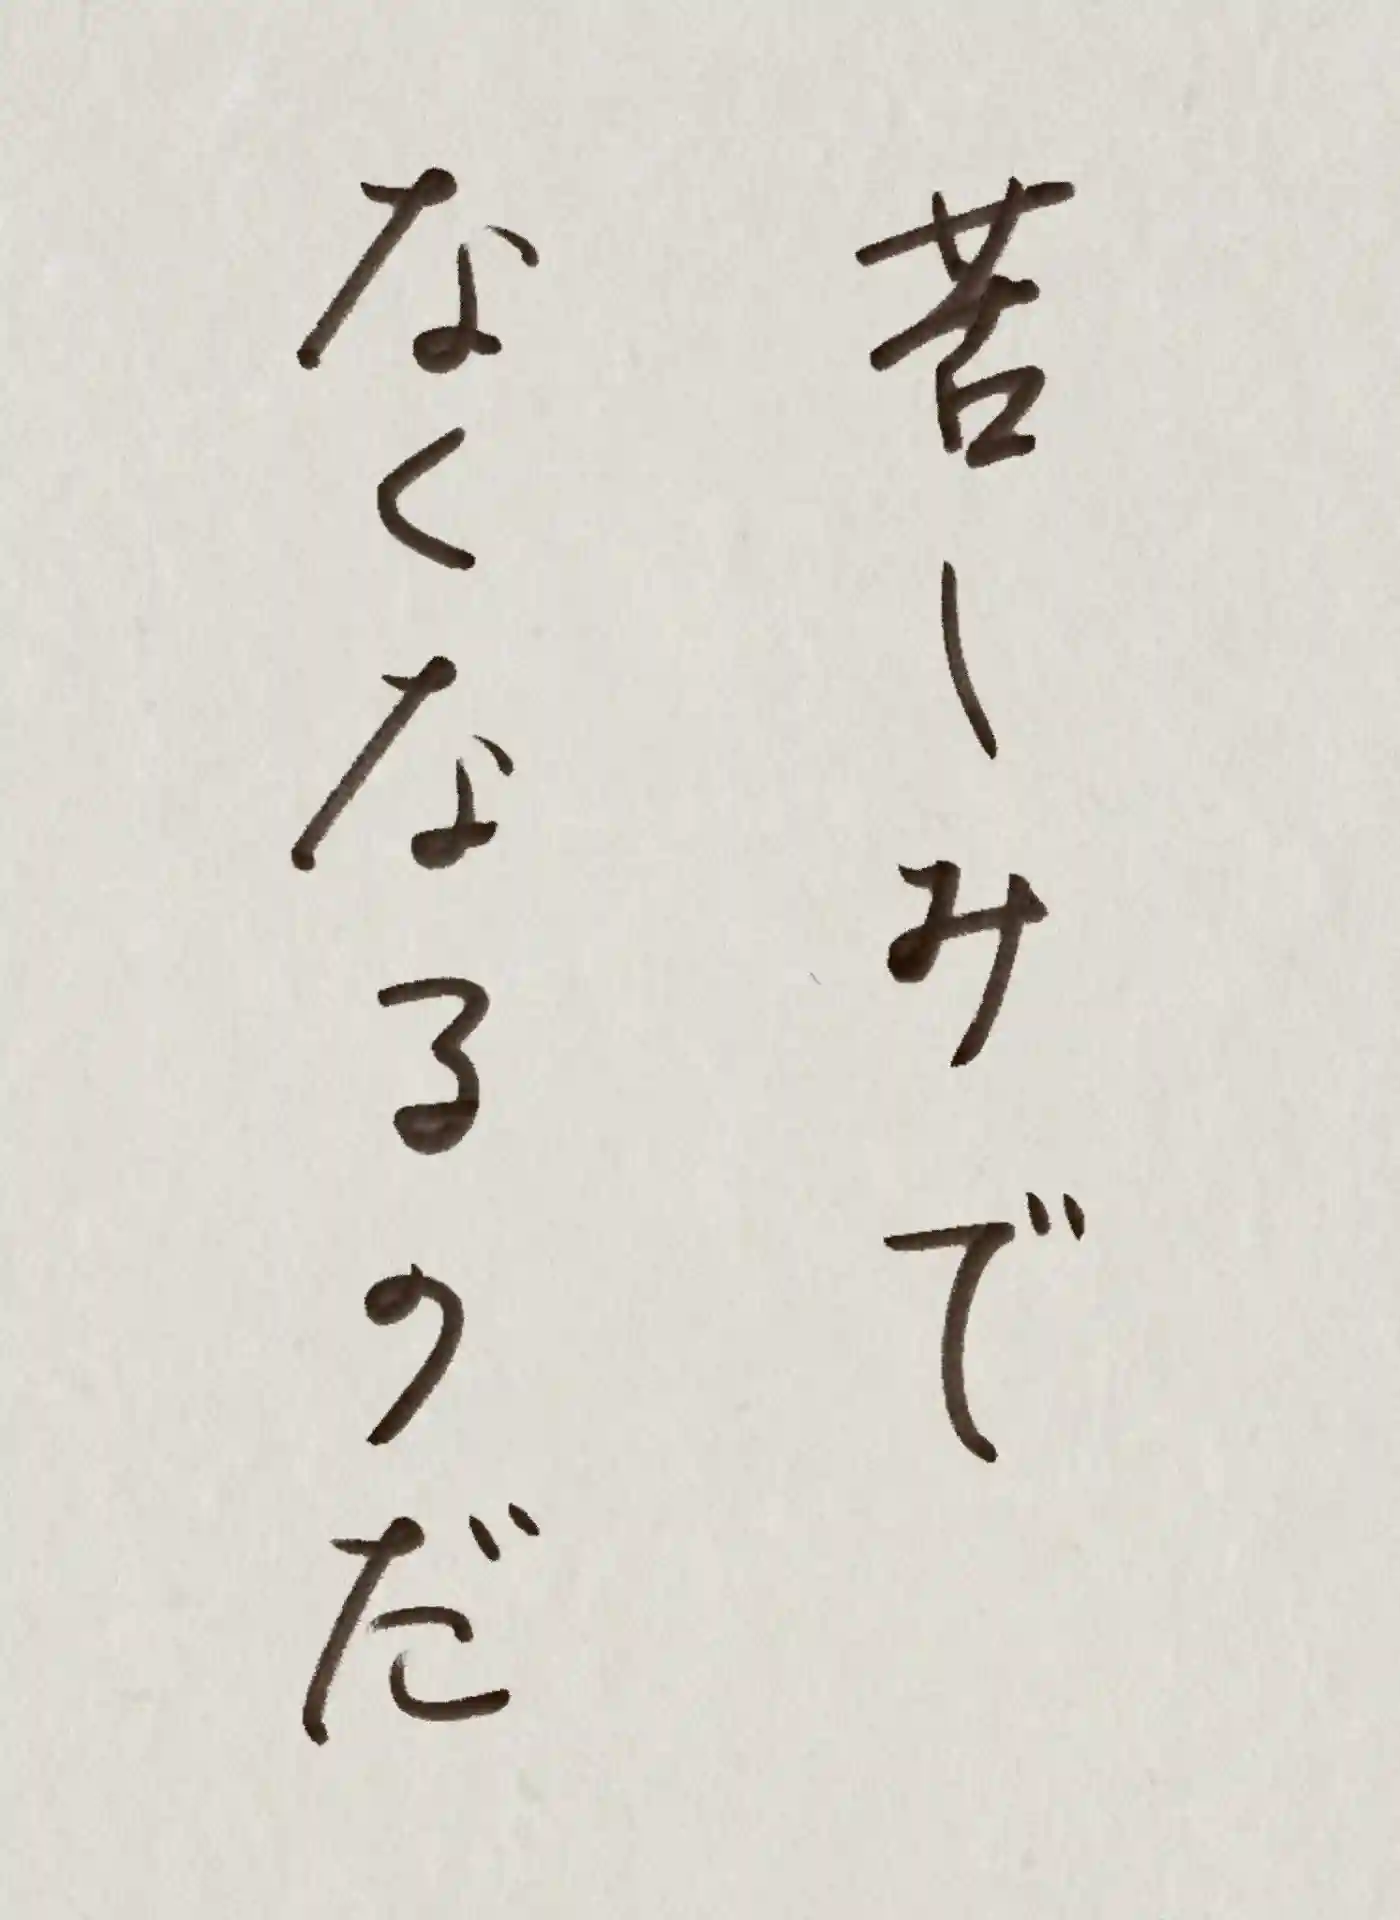 苦しみで
なくなるのだ